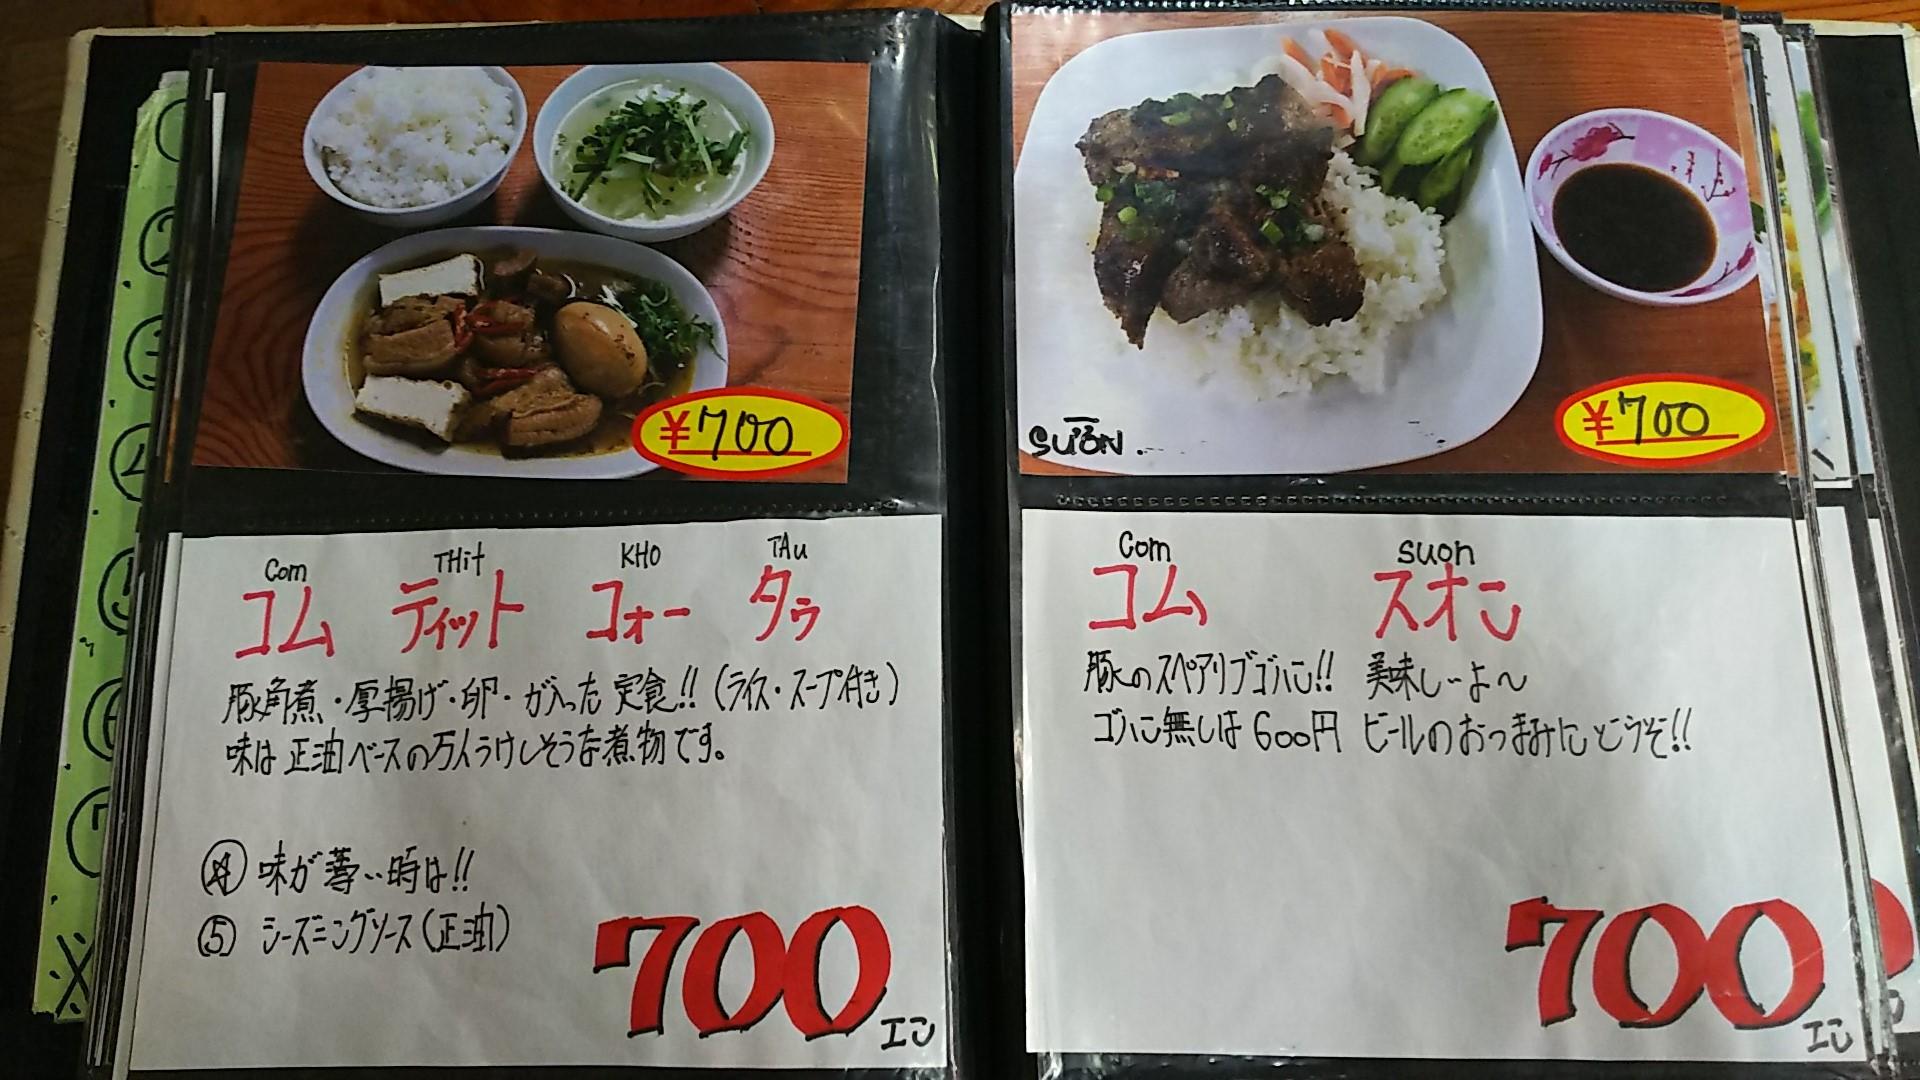 ¥700
Com THit KHO TAu
コム ティット コォー タウ
豚角煮・厚揚げ・卵・が入った定食!!(ライス・スープ付き)
味は正油ベースの万人うけしそうな煮物です。
味が薄い時は!!
⑤ シーズニングソース(正油)
700エン
SUŌN.
¥700
Com suon
コム スオン
豚のスペアリブゴハン!! 美味しいよ〜
ゴハン無しは600円 ビールのおつまみにどうぞ!!
700エン